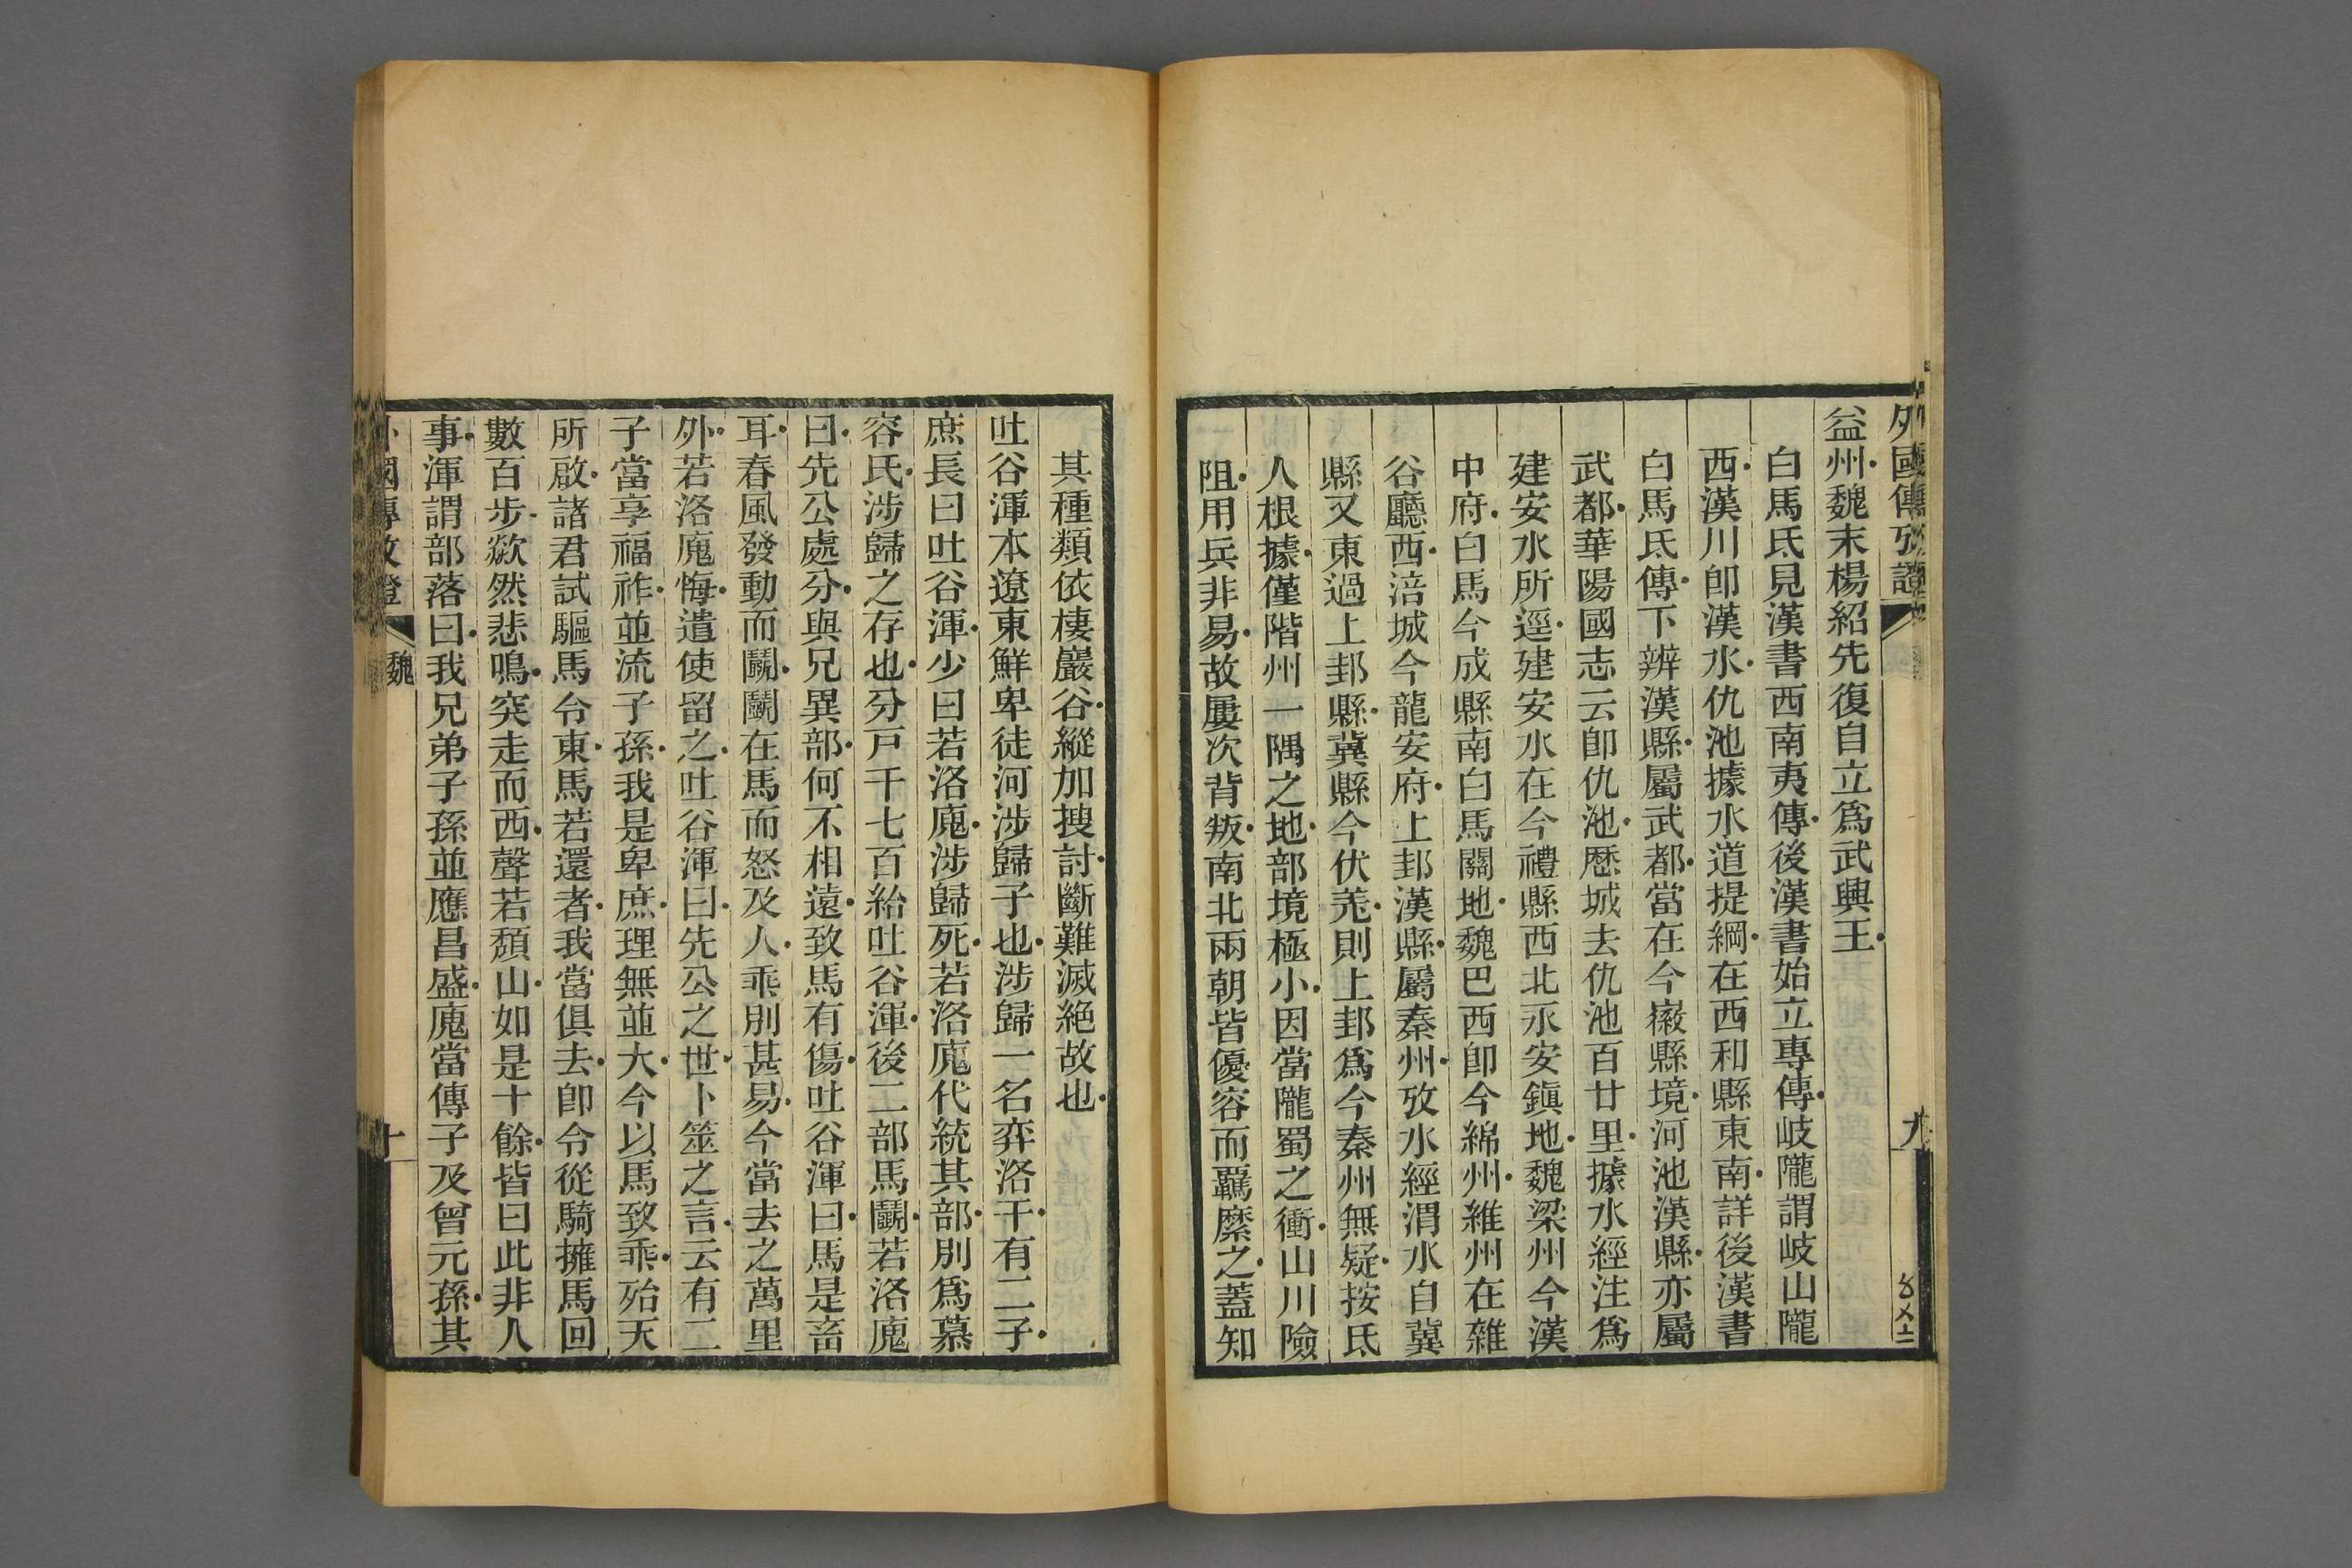 外國傳攷證
九
益州魏末楊紹先復自立爲武興王
白馬氐見漢書西南夷傳後漢書始立專傳岐隴謂岐山隴
西漢川卽漢水仇池據水道提綱在西和縣東南詳後漢書
白馬氐傳下辨漢縣屬武都當在今徽縣境河池漢縣亦屬
武都華陽國志云卽仇池歷城去仇池百廿里據水經注爲
建安水所逕建安水在今禮縣西北永安鎭地魏梁州今漢
中府白馬今成縣南白馬關地魏巴西卽今綿州維州在雜
谷廳西涪城今龍安府上邽漢縣屬秦州攷水經渭水自冀
縣又東過上邽縣冀縣今伏羌則上邽爲今秦州無疑按氐
人根據僅階州一隅之地部境極小因當隴蜀之衝山川險
阻用兵非易故屢次背叛南北兩朝皆優容而羈縻之蓋知
其種類依棲巖谷縱加搜討斷難滅絕故也
吐谷渾本遼東鮮卑徒河涉歸子也涉歸一名弈洛干有二子
庶長曰吐谷渾少曰若洛廆涉歸死若洛廆代統其部別爲慕
容氏涉歸之存也分戸千七百給吐谷渾後二部馬鬭若洛廆
曰先公處分與兄異部何不相遠致馬有傷吐谷渾曰馬是畜
耳春風發動而鬭鬭在馬而怒及人乖別甚易今當去之萬里
外若洛廆悔遣使留之吐谷渾曰先公之世卜筮之言云有二
子當享福祚並流子孫我是卑庶理無並大今以馬致乖殆天
所啟諸君試驅馬令東馬若還者我當俱去卽令從騎擁馬回
數百步歘然悲鳴突走而西聲若頹山如是十餘皆曰此非人
事渾謂部落曰我兄弟子孫並應昌盛廆當傳子及曾元孫其
外國傳攷證
魏
十